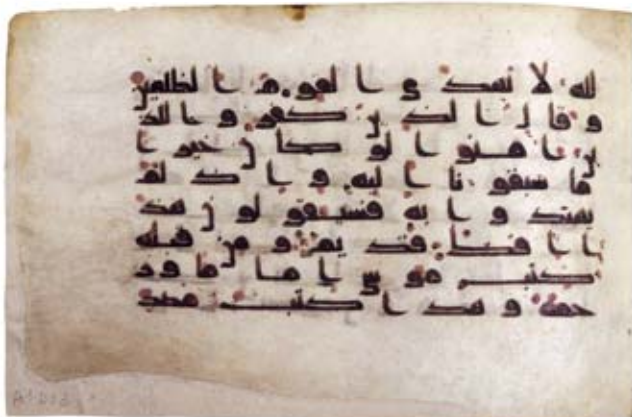 لله لا يهدي القوم الظلمين
و قال الذين كفروا للذ
ين امنوا لو كان خيرا
ما سبقونا اليه و اذ لم
يهتدوا به فسيقولون هذ
ا افك قديم و من قبله
كتب موسى اماما و ر
حمة و هذا كتب مصد